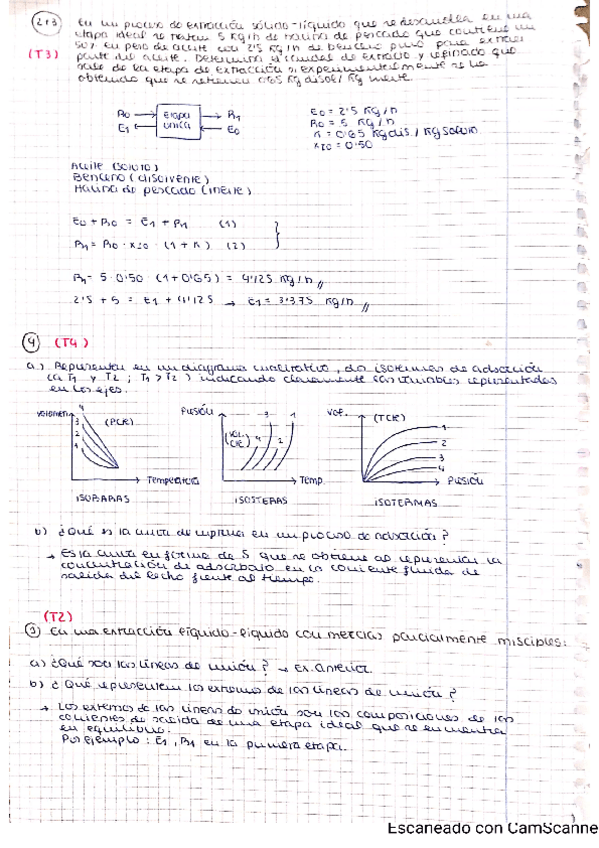 2 y 3
En un proceso de extracción sólido-líquido que se desarrolla en una
etapa ideal se tratan 5 kg/h de harina de pescado que contiene un
50% en peso de aceite con 2'5 kg/h de benceno puro para extraer
(T3)
parte del aceite. Determina de extracto y refinado que
sale de la etapa de extracción si experimentalmente se ha
obtenido que se retienen 0'65 kg disol/ kg inerte.
R0 → etapa única → R1
E1 ← ← E0
E0 = 2'5 kg/h
R0 = 5 kg/h
K = 0'65 kg dis. / kg
x10 = 0'50
Aceite (soluto)
Benceno (disolvente)
Harina de pescado (inerte)
E0 + R0 = E1 + R1 (1)
R1 = R0 · x10 · (1 + K) (2)
R1 = 5 · 0'50 · (1 + 0'65) = 4'125 kg/h //
2'5 + 5 = E1 + 4'125 → E1 = 3'375 kg/h //
4 (T4)
a) Representar en un diagrama cualitativo, dos isotermas de adsorción
(a T1 y T2 ; T1 > T2) indicando claramente las variables representadas
en los ejes.
Volumen
4
3
2
1
(P cte)
Temperatura
ISOBARAS
Presión
(Vol. cte)
Temp.
ISOSTERAS
Vol.
(T cte)
1
2
3
4
Presión
ISOTERMAS
b) ¿Qué es la curva de ruptura en un proceso de adsorción?
→ Es la curva en forma de S que se obtiene al representar la
concentración de adsorbato en la corriente fluida de
salida del lecho frente al tiempo.
(T2)
1 En una extracción líquido-líquido con mezclas parcialmente miscibles:
a) ¿Qué son las líneas de unión? → Ex. anterior.
b) ¿Qué representan los extremos de las líneas de unión?
→ Los extremos de las líneas de unión son las composiciones de las
corrientes de salida de una etapa ideal que se encuentra
en equilibrio.
Por ejemplo: E1, R1 en la primera etapa.
Escaneado con CamScanne